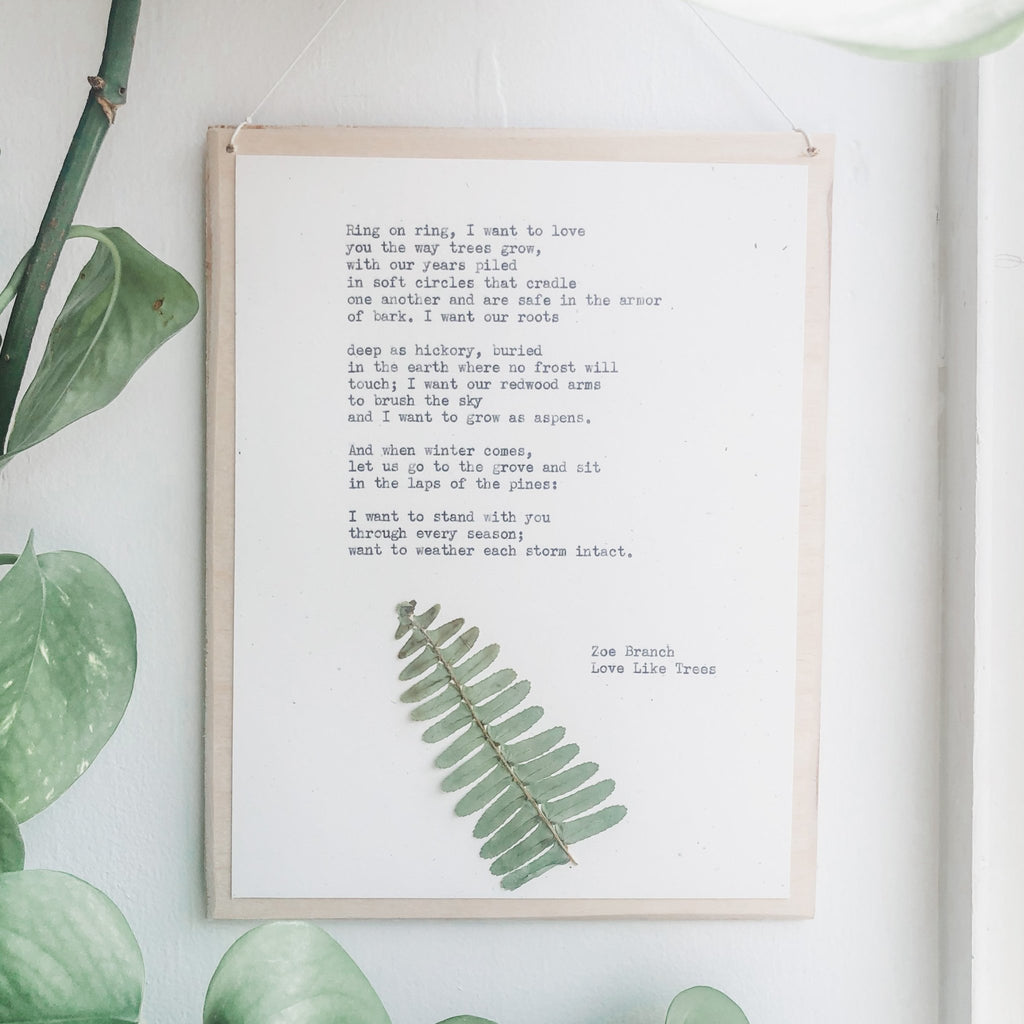 Ring on ring, I want to love
you the way trees grow,
with our years piled
in soft circles that cradle
one another and are safe in the armor
of bark. I want our roots
deep as hickory, buried
in the earth where no frost will
touch; I want our redwood arms
to brush the sky
and I want to grow as aspens.
And when winter comes,
let us go to the grove and sit
in the laps of the pines:
I want to stand with you
through every season;
want to weather each storm intact.
Zoe Branch
Love Like Trees